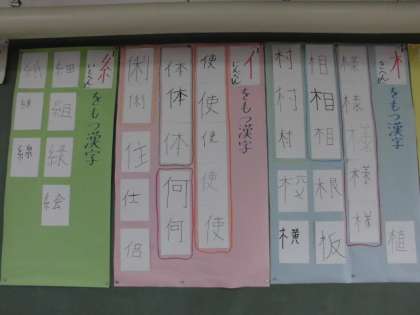 木
きへん
をもつ漢字
植
様
様
様
様
様
相
相
相
根
板
村
村
村
横
イ
にんべん
をもつ漢字
使
使
使
使
使
体
体
体
何
何
住
仕
侶
糸
いとへん
をもつ漢字
細
組
緑
絵
紙
線